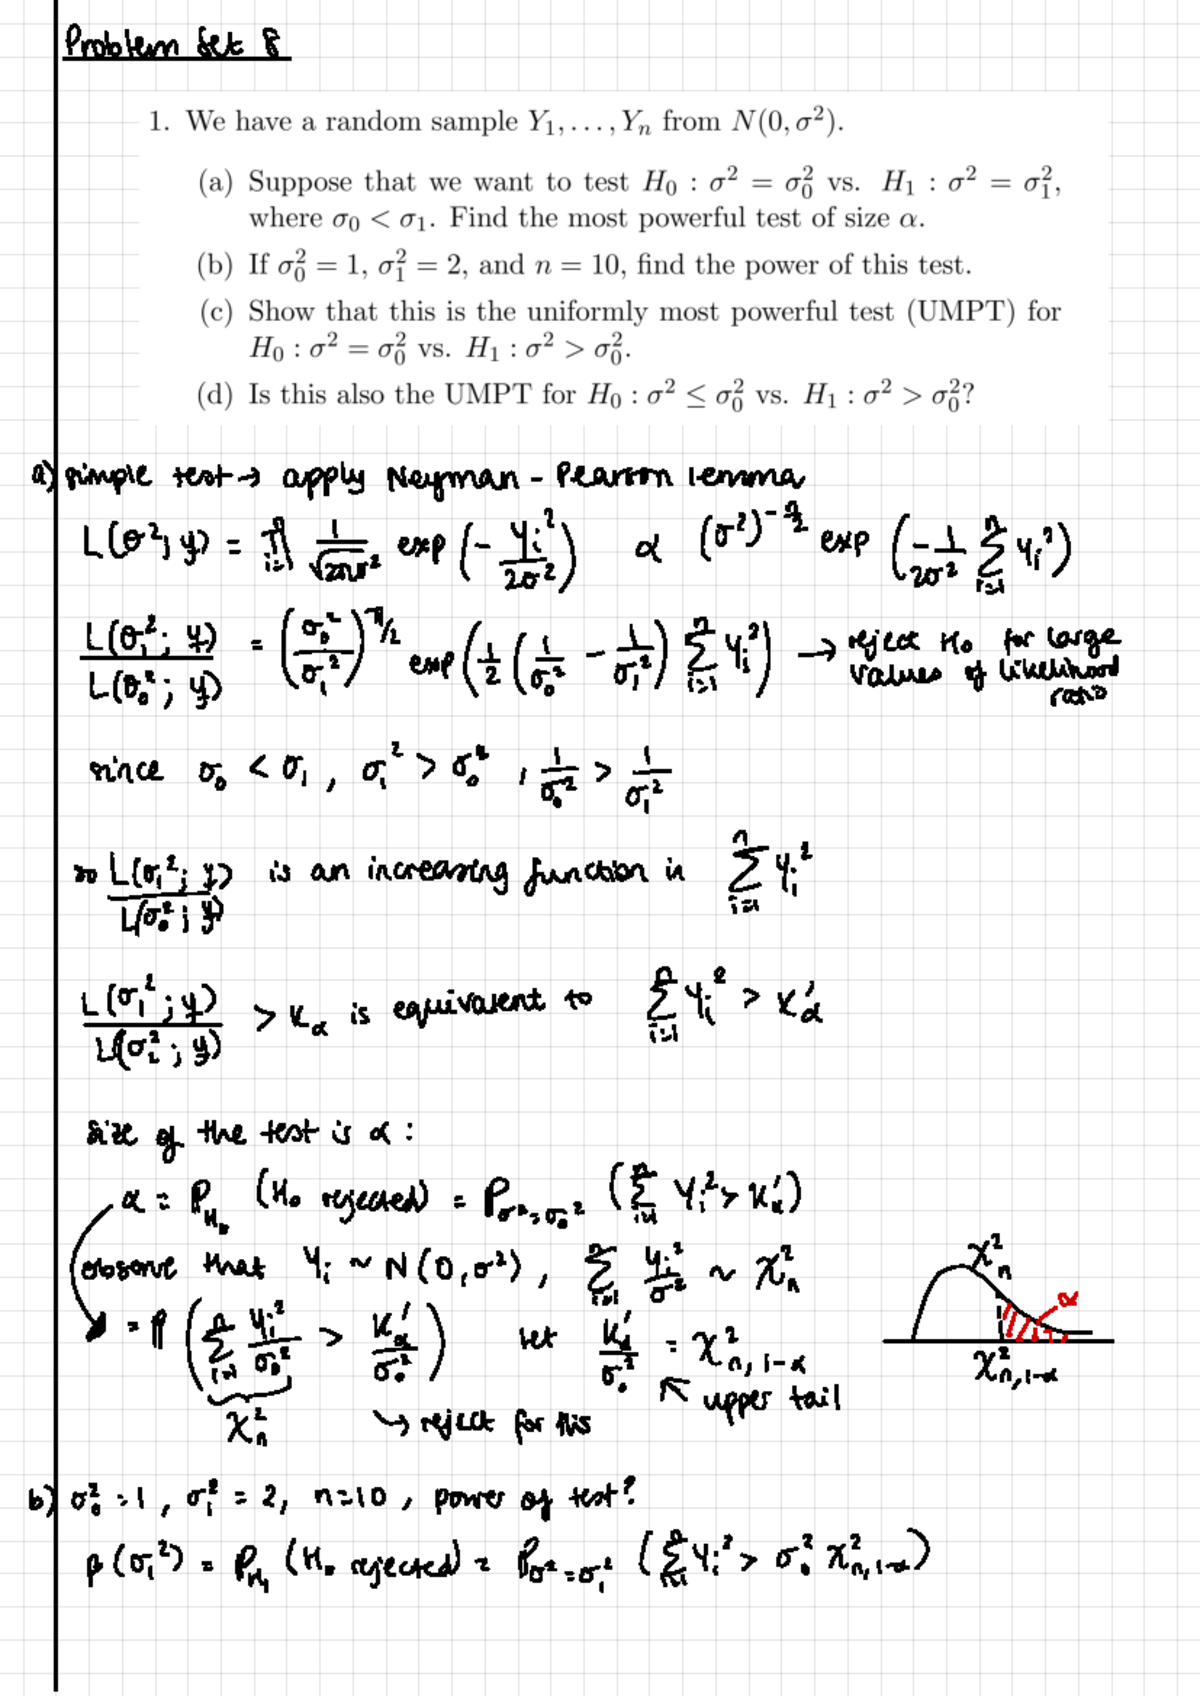 Problem Set 8
1. We have a random sample Y₁, . . . , Yₙ from N(0, σ²).
(a) Suppose that we want to test H₀ : σ² = σ₀² vs. H₁ : σ² = σ₁²,
where σ₀ < σ₁. Find the most powerful test of size α.
(b) If σ₀² = 1, σ₁² = 2, and n = 10, find the power of this test.
(c) Show that this is the uniformly most powerful test (UMPT) for
H₀ : σ² = σ₀² vs. H₁ : σ² > σ₀².
(d) Is this also the UMPT for H₀ : σ² ≤ σ₀² vs. H₁ : σ² > σ₀²?
a) simple test → apply Neyman - Pearson lemma
L(σ²; y) = ∏ᵢ₌₁ⁿ 1/√(2πσ²) exp(- yᵢ²/2σ²) ∝ (σ²)^(-n/2) exp(-1/2σ² Σᵢ₌₁ⁿ yᵢ²)
L(σ₁²; y)/L(σ₀²; y) = (σ₀²/σ₁²)^(n/2) exp(1/2 (1/σ₀² - 1/σ₁²) Σᵢ₌₁ⁿ yᵢ²) → reject H₀ for large
values of likelihood
ratio
since σ₀ < σ₁, σ₁² > σ₀², 1/σ₀² > 1/σ₁²
so L(σ₁²; y)/L(σ₀²; y) is an increasing function in Σᵢ₌₁ⁿ yᵢ²
L(σ₁²; y)/L(σ₂²; y) > K_α is equivalent to Σᵢ₌₁ⁿ yᵢ² > K'_α
size of the test is α :
α = P_H₀ (H₀ rejected) = P_σ²=σ₀² (Σᵢ₌₁ⁿ Yᵢ² > K'_α)
observe that Yᵢ ~ N(0, σ²), Σᵢ₌₁ⁿ Yᵢ²/σ² ~ χ²ₙ
χ²ₙ
α
χ²ₙ,₁₋α
= P(Σᵢ₌₁ⁿ Yᵢ²/σ₀² > K'_α/σ₀²) set K'_α/σ₀² = χ²ₙ,₁₋α
↖ upper tail
χ²ₙ ↳ reject for this
b) σ₀² = 1, σ₁² = 2, n=10, power of test?
β(σ₁²) = P_H₁ (H₀ rejected) = P_σ²=σ₁² (Σᵢ₌₁ⁿ Yᵢ² > σ₀² χ²ₙ,₁₋α)